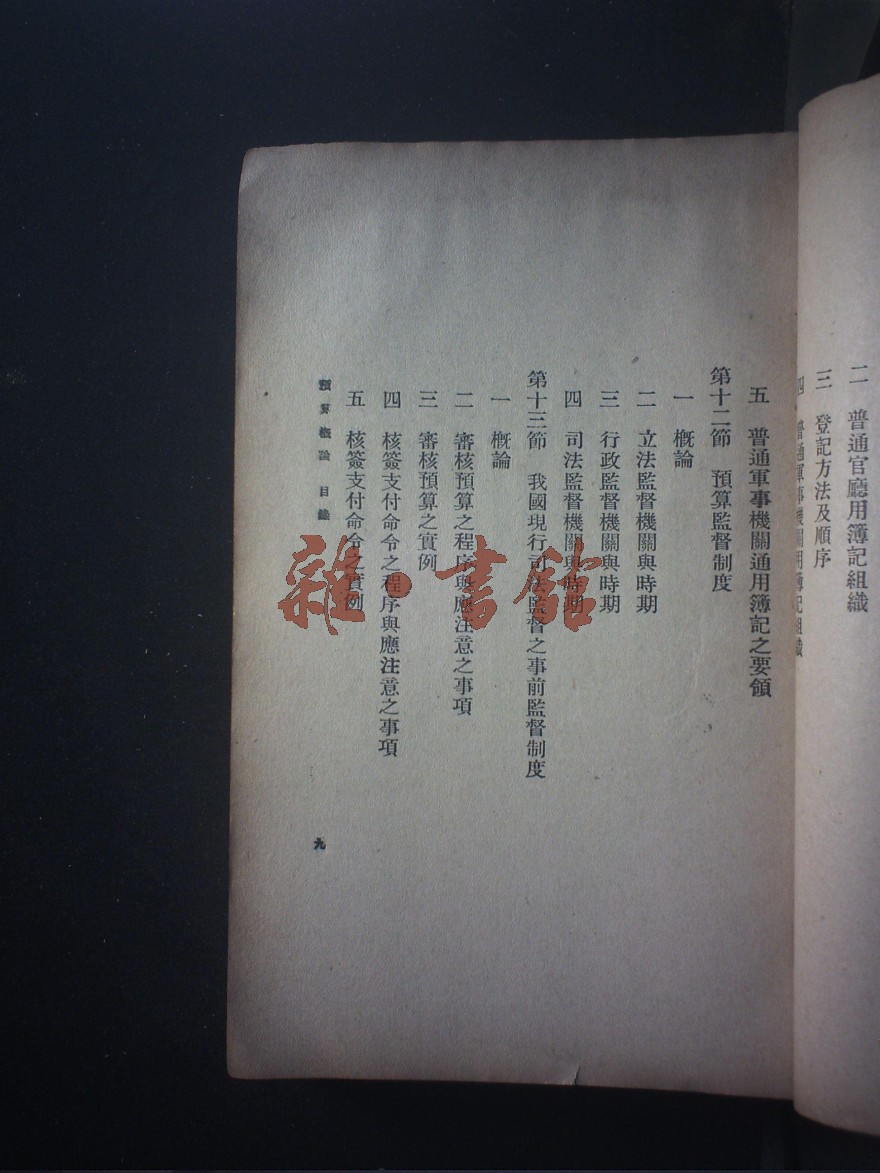 二　普通官廳用簿記組織
三　登記方法及順序
四　普通軍事機關用簿記組織
五　普通軍事機關通用簿記之要領
第十二節　預算監督制度
一　概論
二　立法監督機關與時期
三　行政監督機關與時期
四　司法監督機關與時期
第十三節　我國現行司法監督之事前監督制度
一　概論
二　審核預算之程序與應注意之事項
三　審核預算之實例
四　核簽支付命令之程序與應注意之事項
五　核簽支付命令之實例
預算概論　目錄
九
雜·書館